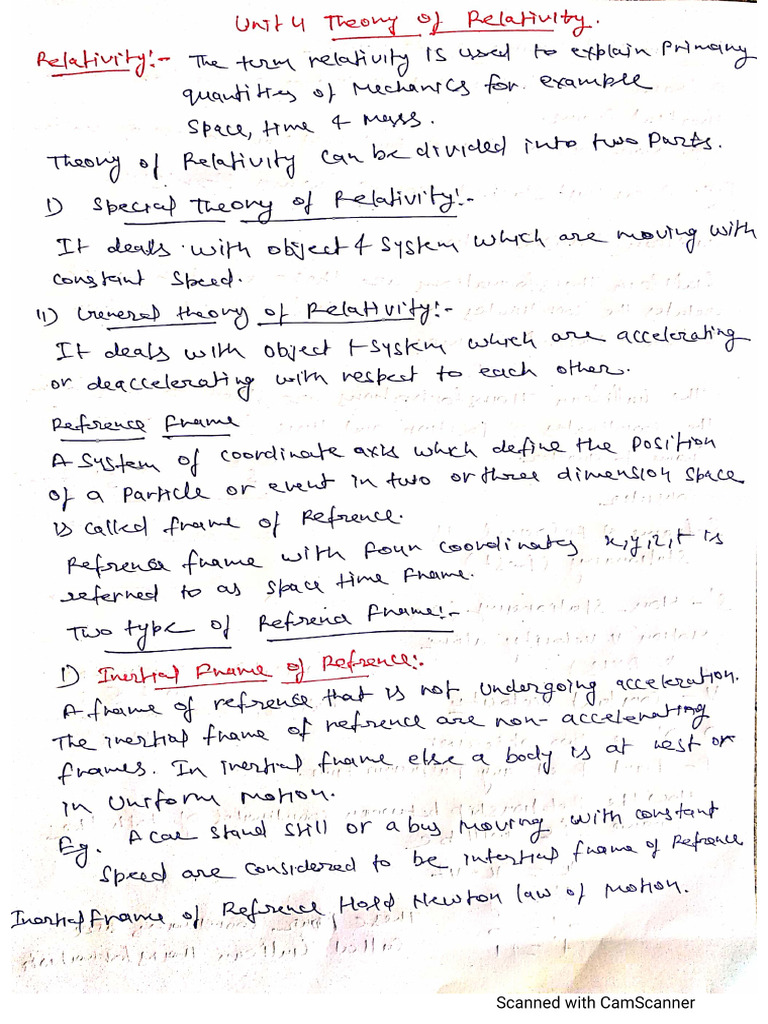 Unit 4 Theory of Relativity.
Relativity:- The term relativity is used to explain Primary
quantities of Mechanics for example
Space, time & Mass.
Theory of Relativity can be divided into two Parts.
I) Special Theory of Relativity:-
It deals with object & system which are moving with
constant speed.
II) General theory of Relativity:-
It deals with object & system which are accelerating
or deaccelerating with respect to each other.
Reference Frame
A system of coordinate axis which define the position
of a particle or event in two or three dimension space
is called frame of Refrence.
Refrence frame with four coordinates x,y,z,t is
referred to as space time frame.
Two type of Refrence Frame:-
I) Inertial Frame of Refrence:-
A frame of reference that is not undergoing acceleration.
The inertial frame of reference are non-accelerating
frames. In inertial frame else a body is at rest or
in Uniform Motion.
Eg. A car stand still or a bus moving with constant
speed are considered to be intertial frame of Refrence
Inertial Frame of Reference Hold Newton law of Motion.
Scanned with CamScanner